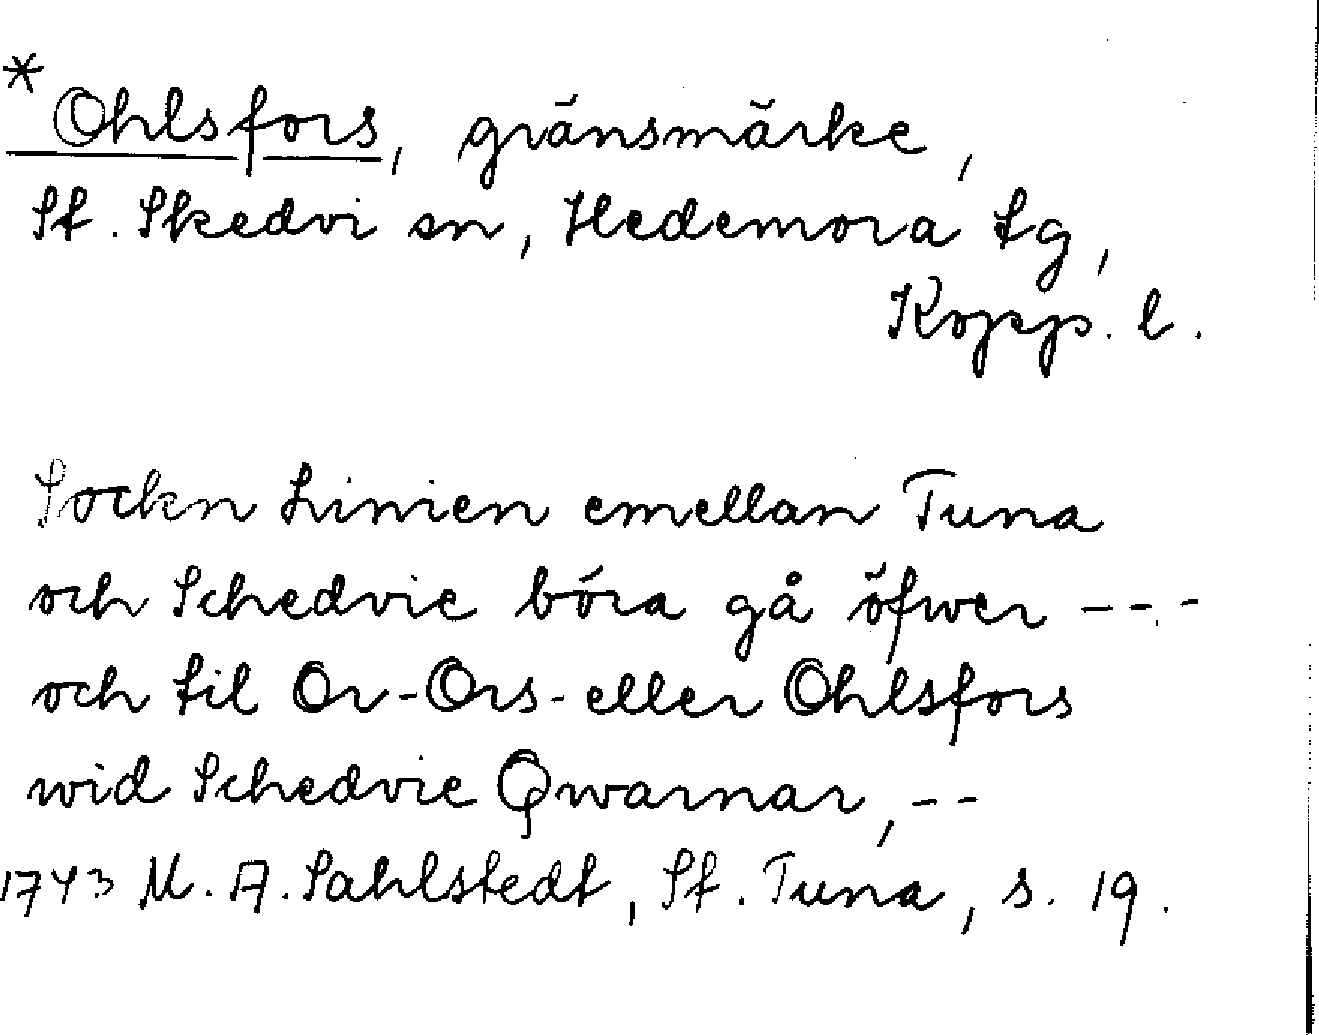 *Ohlsfors, gränsmärke,
St. Skedvi sn, Hedemora tg,
Kopp. l.
Sockn Linien emellan Tuna
och Schedvie böra gå öfwer ---
och til Or-Ors-eller Ohlsfors
wid Schedvie Qwarnar, --
1743 M. A. Sahlstedt, St. Tuna, s. 19.